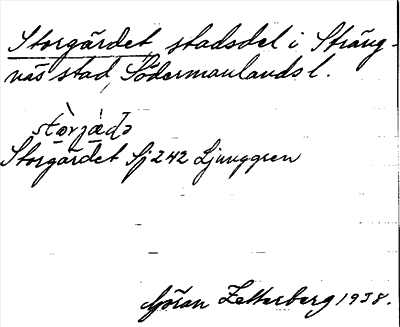 Storgärdet, stadsdel i Sträng-
näs stad, Södermanlands l.
Storgärdet Sj 242 Ljunggren
Göran Zetterberg 1938.